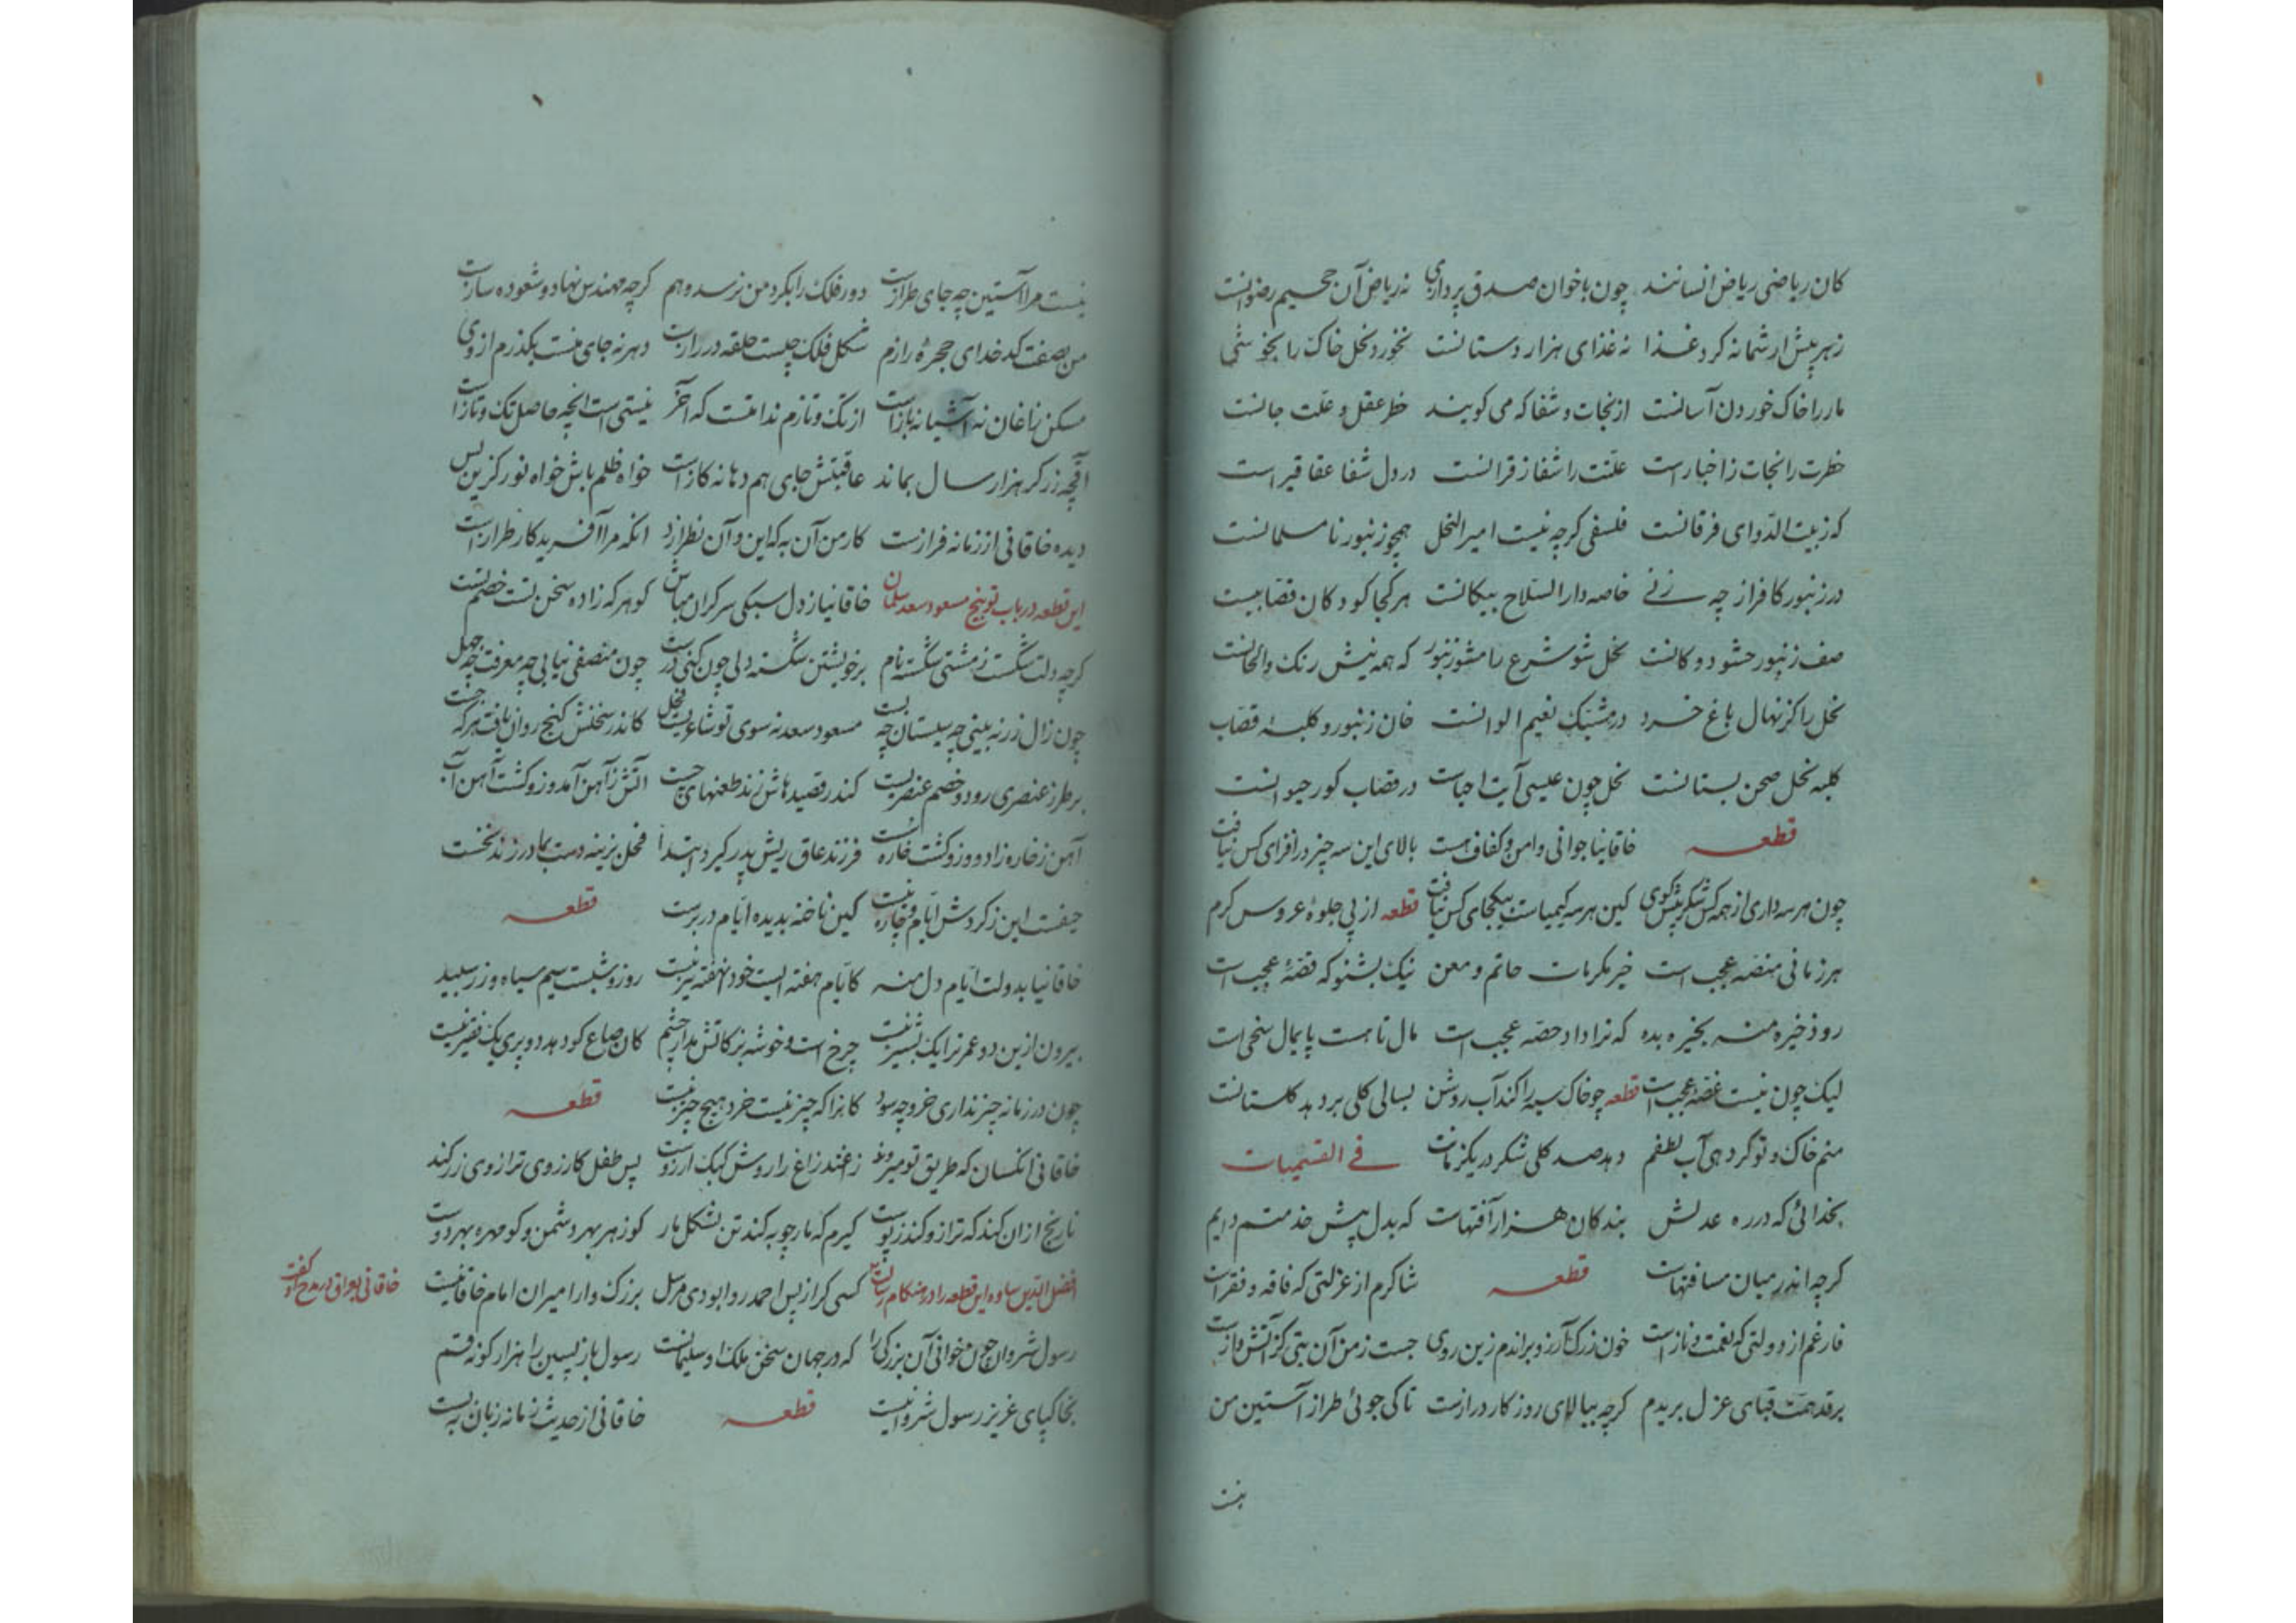 کان ریاضی ریاض انسانند چون باخوان صدق پردازی نه ریاض آن جحیم رضوانست
زهر پیش ارشما نه کرد غذا نه غذای هزار دستانست نخورد نخل خاک را
مار را خاک خوردن آسانست از نجات و شفا که می کویند خطر عقل و علت جانست
خطرت را نجات ز اخبارست علتت را شفا ز قرانست در دل شفا عقاقیر است
که زبیت الدوای فرقانست فلسفی کرچه نیست امیر النحل همچو زنبور نامسلمانست
در زنبور کافر از چه زنی خاصه دار السلاح پیکانست هر کجا کو دکان قصابیست
صف زنبور حشو دوکانست نحل شو شرع را مشو زنبور که همه نیش رنک والحانست
نحل را کز نهال باغ خرد در مشبک نعیم الوانست خان زنبور و کلبه قصاب
کلبه نحل صحن بستانست نحل چون عیسی آیت احیاست در قصاب کور حیوانست
قطعه خاقانیا جوانی و امن و کفاف هست بالای این سه چیز در افزای کس نیافت
چون هر سه داری از همه کس شکر بیش کوی کین هر سه کیمیاست بیکجای کس نیافت قطعه از پی جلوه عروس کرم
هر زمانی منصه عجب است خیر مکرمات حاتم و معن نیک بشنو که قصه عجب است
رو ذخیره منه بخیره بده که ترا داد حصه عجب است مال تا هست پایمال سخی است
لیک چون نیست غصه عجب است قطعه چو خاک سیه را کند آب روشن بسالی کلی بر دهد کلستانت
منم خاک و تو کر دهی آب لطفم دهد صد کلی شکر در یکزمانت فی القسمیات
بخدائی که در ره عدلش بندکان هزار آفتهاست که بدل پیش خدمتم دایم
کرچه اندر میان مسافتهاست قطعه شاکرم از عزلتی که فاقه و فقر است
فارغم از دولتی که نعمت و نازاست خون زرک آرزو براندم زین روی جست زمن آن تبی کز آتش آزاست
بر قد همت قبای عزل بریدم کرچه ببالای روز کار درازست تا کی جوئی طراز آستین من
نیست
نیست مرا آستین چه جای طرازاست دور فلک را بکرد من نرسد وهم کرچه مهندس نهاد و شعوده سازاست
من بصفت کدخدای حجره رازم شکل فلک چیست حلقه در رازاست دهر نه جای منست بکذرم از وی
مسکن زاغان نه آشیانه بازاست از تک و تازم ندامتست که آخر نیستی است انچه حاصل تک و تازاست
آقچه زر کر هزار سال بماند عاقبتش جای هم دهانه کازاست خواه ظلم پاش خواه نور کزین پس
دیده خاقانی از زمانه فرازست کار من آن به که این و آن نطرازد انکه مرا آفرید کار طرازاست
این قطعه در باب توبیخ مسعود سعد سلمان خاقانیا ز دل سبکی سر کران مباش کو هر که زاده سخن تست خصم تست
کرچه دلت شکست ز مشتی شکسته نام بر خویشتن شکسته دلی چون کنی درست چون منصفی نیابی چه معرفت چه جهل
چون زال زر نه بینی چه سیستان چه بست مسعود سعد نه سوی تو شاعریست فحل کاندر سخنش کنج روان یافت هر که جست
بر طرز عنصری رود و خصم عنصریست کندر قصیدهاش زند طعنهای چست آتش ز آهن آمد و زو کشت آهن آب
آهن ز خاره زاد و زو کشت خاره فرزند عاق ریش پدر کیرد ابتدا فحل نرینه دست بمادر زند نخست
حیفست این ز کردش ایام و چاره نیست کین ناخنه بدیده ایام در برست قطعه
خاقانیا بدولت ایام دل منه کایام هفته ایست خود آن هفته نیز نیست روز و شبست سیم سیاه و زر سپید
بیرون ازین دو عمر ترا یک پشیز نیست چرخ است و خوشه بز کاتش مدار چشم کان صاع کو دهد دو پری یک قفیز نیست
چون در زمانه چیز نداری خرد چه سود کانرا که چیز نیست خرد هیچ چیز نیست قطعه
خاقانی انکسان که طریق تو میروند زاغند زاغ را روش کبک آرزوست بس طفل کارزوی ترازوی زر کند
نارنج ازان کند که ترازو کند ز پوست کیرم که مار چوبه کند تن بشکل مار کو زهر بهر دشمن و کو مهره بهر دوست
افضل الدین ساوه این قطعه را در هنکام خاقانی بعراق در مدح او کفت کسی کر از پس احمد روا بودی مرسل بزرک وار امیران امام خاقانیست
رسول شروان چون خوانی آن بزرکی را که در جهان سخن ملک او سلیمانست رسول باز پسین را هزار کونه قسم
بخاکپای عزیز رسول شروانیست قطعه خاقانی از حدیث زمانه زبان به بست